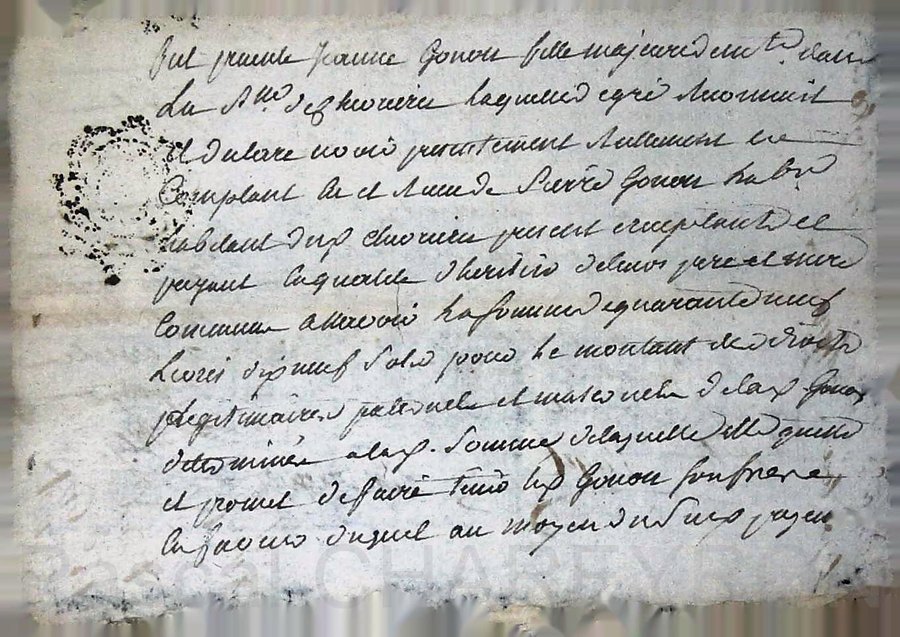 fut presente Jeanne Gonon fille majeure dans
La de laquelle de gré reconnoit
et declare avoir presentement reellement en
Comptant eu et receu de Pierre Gonon
habitant dud present acceptant et
payant en qualité d'heritier de leurs pere et mere
Communs a savoir La somme de quarante neuf
Livres dix neuf sols pour Le montant des droits
Legitimaires paternels et maternels de lad Gonon
determinés a lad. Somme de laquelle elle quitte
et promet de faire tenir led Gonon son frere
en faveur duquel au moyen du susd payem
Pascal CHAREYRON